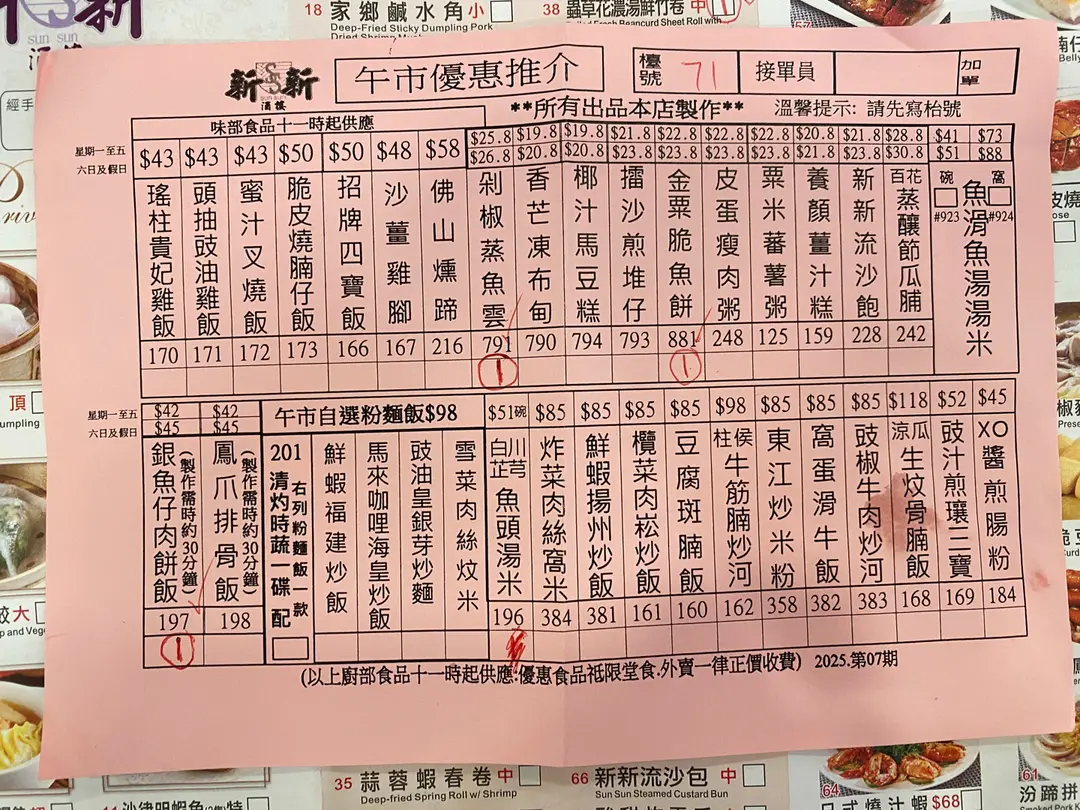 18 家鄉鹹水角 小
Deep-Fried Sticky Dumpling Pork
38 蟲草花濃湯鮮竹卷 中 1
新新
sun sun
經手
新新
酒樓
午市優惠推介
檯號 71 接單員 加單
**所有出品本店製作** 溫馨提示: 請先寫枱號
味部食品十一時起供應
星期一至五
六日及假日
$43 $43 $43 $50 $50 $48 $58
$25.8 $19.8 $19.8 $21.8 $22.8 $22.8 $22.8 $20.8 $21.8 $28.8 $41 $73
$26.8 $20.8 $20.8 $23.8 $23.8 $23.8 $23.8 $21.8 $23.8 $30.8 $51 $88
瑤柱貴妃雞飯 170
頭抽豉油雞飯 171
蜜汁叉燒飯 172
脆皮燒腩仔飯 173
招牌四寶飯 166
沙薑雞腳 167
佛山燻蹄 216
剁椒蒸魚雲 791 1
香芒凍布甸 790
椰汁馬豆糕 794
擂沙煎堆仔 793
金粟脆魚餅 881 1
皮蛋瘦肉粥 248
粟米蕃薯粥 125
養顏薑汁糕 159
新新流沙飽 228
百花蒸釀節瓜脯 242
碗 #923 窩 #924
魚滑魚湯湯米
星期一至五
六日及假日
$42 $42
$45 $45
午市自選粉麵飯$98
$51碗 $85 $85 $85 $85 $98 $85 $85 $85 $118 $52 $45
銀魚仔肉餅飯 (製作需時約30分鐘) 197 1
鳳爪排骨飯 (製作需時約30分鐘) 198
201 清灼時蔬一碟 配
右列粉麵飯一款
鮮蝦福建炒飯
馬來咖哩海皇炒飯
豉油皇銀芽炒麵
雪菜肉絲炆米
白芷川芎魚頭湯米 196
炸菜肉絲窩米 384
鮮蝦揚州炒飯 381
欖菜肉崧炒飯 161
豆腐斑腩飯 160
柱侯牛筋腩炒河 162
東江炒米粉 358
窩蛋滑牛飯 382
豉椒牛肉炒河 383
涼瓜生炆骨腩飯 168
豉汁煎壤三寶 169
XO醬煎腸粉 184
(以上廚部食品十一時起供應.優惠食品祗限堂食.外賣一律正價收費) 2025.第07期
35 蒜蓉蝦春卷 中
Deep-fried Spring Roll w/ Shrimp
66 新新流沙包 中
Sun Sun Steamed Custard Bun
64
$68
61